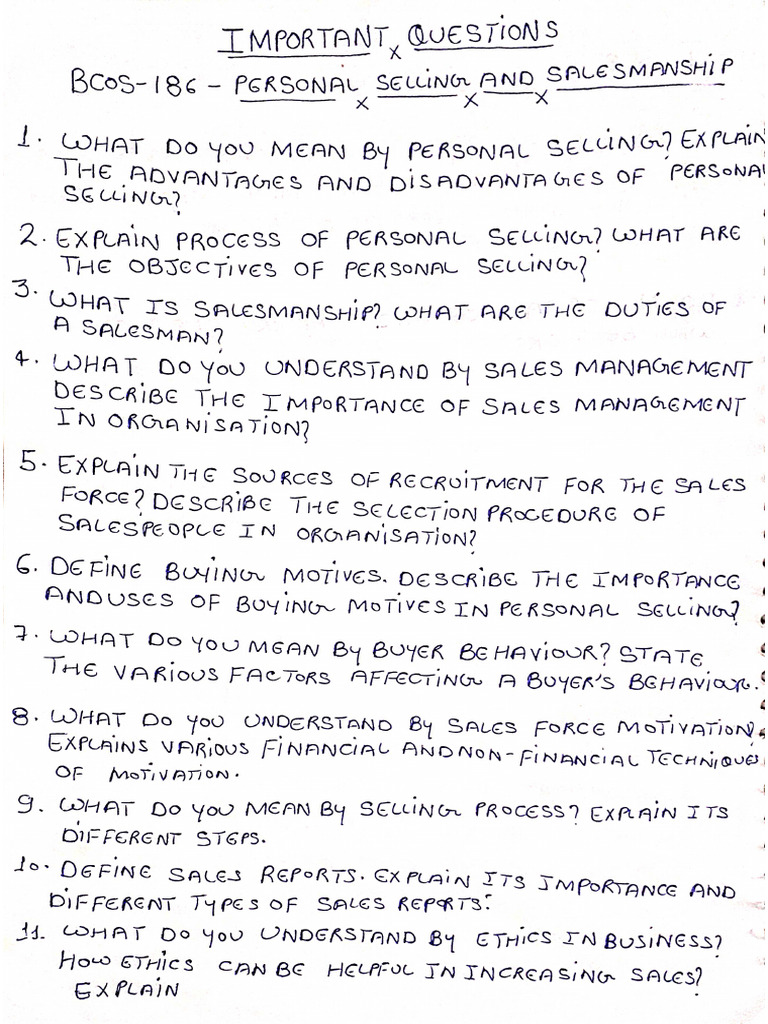 IMPORTANT QUESTIONS
BCOS-186 - PERSONAL SELLING AND SALESMANSHIP
1. WHAT DO YOU MEAN BY PERSONAL SELLING? EXPLAIN
THE ADVANTAGES AND DISADVANTAGES OF PERSONAL
SELLING?
2. EXPLAIN PROCESS OF PERSONAL SELLING? WHAT ARE
THE OBJECTIVES OF PERSONAL SELLING?
3. WHAT IS SALESMANSHIP? WHAT ARE THE DUTIES OF
A SALESMAN?
4. WHAT DO YOU UNDERSTAND BY SALES MANAGEMENT
DESCRIBE THE IMPORTANCE OF SALES MANAGEMENT
IN ORGANISATION?
5. EXPLAIN THE SOURCES OF RECRUITMENT FOR THE SALES
FORCE? DESCRIBE THE SELECTION PROCEDURE OF
SALESPEOPLE IN ORGANISATION?
6. DEFINE BUYING MOTIVES. DESCRIBE THE IMPORTANCE
AND USES OF BUYING MOTIVES IN PERSONAL SELLING?
7. WHAT DO YOU MEAN BY BUYER BEHAVIOUR? STATE
THE VARIOUS FACTORS AFFECTING A BUYER'S BEHAVIOUR.
8. WHAT DO YOU UNDERSTAND BY SALES FORCE MOTIVATION?
EXPLAINS VARIOUS FINANCIAL AND NON-FINANCIAL TECHNIQUES
OF MOTIVATION.
9. WHAT DO YOU MEAN BY SELLING PROCESS? EXPLAIN ITS
DIFFERENT STEPS.
10. DEFINE SALES REPORTS. EXPLAIN ITS IMPORTANCE AND
DIFFERENT TYPES OF SALES REPORTS.
11. WHAT DO YOU UNDERSTAND BY ETHICS IN BUSINESS?
HOW ETHICS CAN BE HELPFUL IN INCREASING SALES?
EXPLAIN